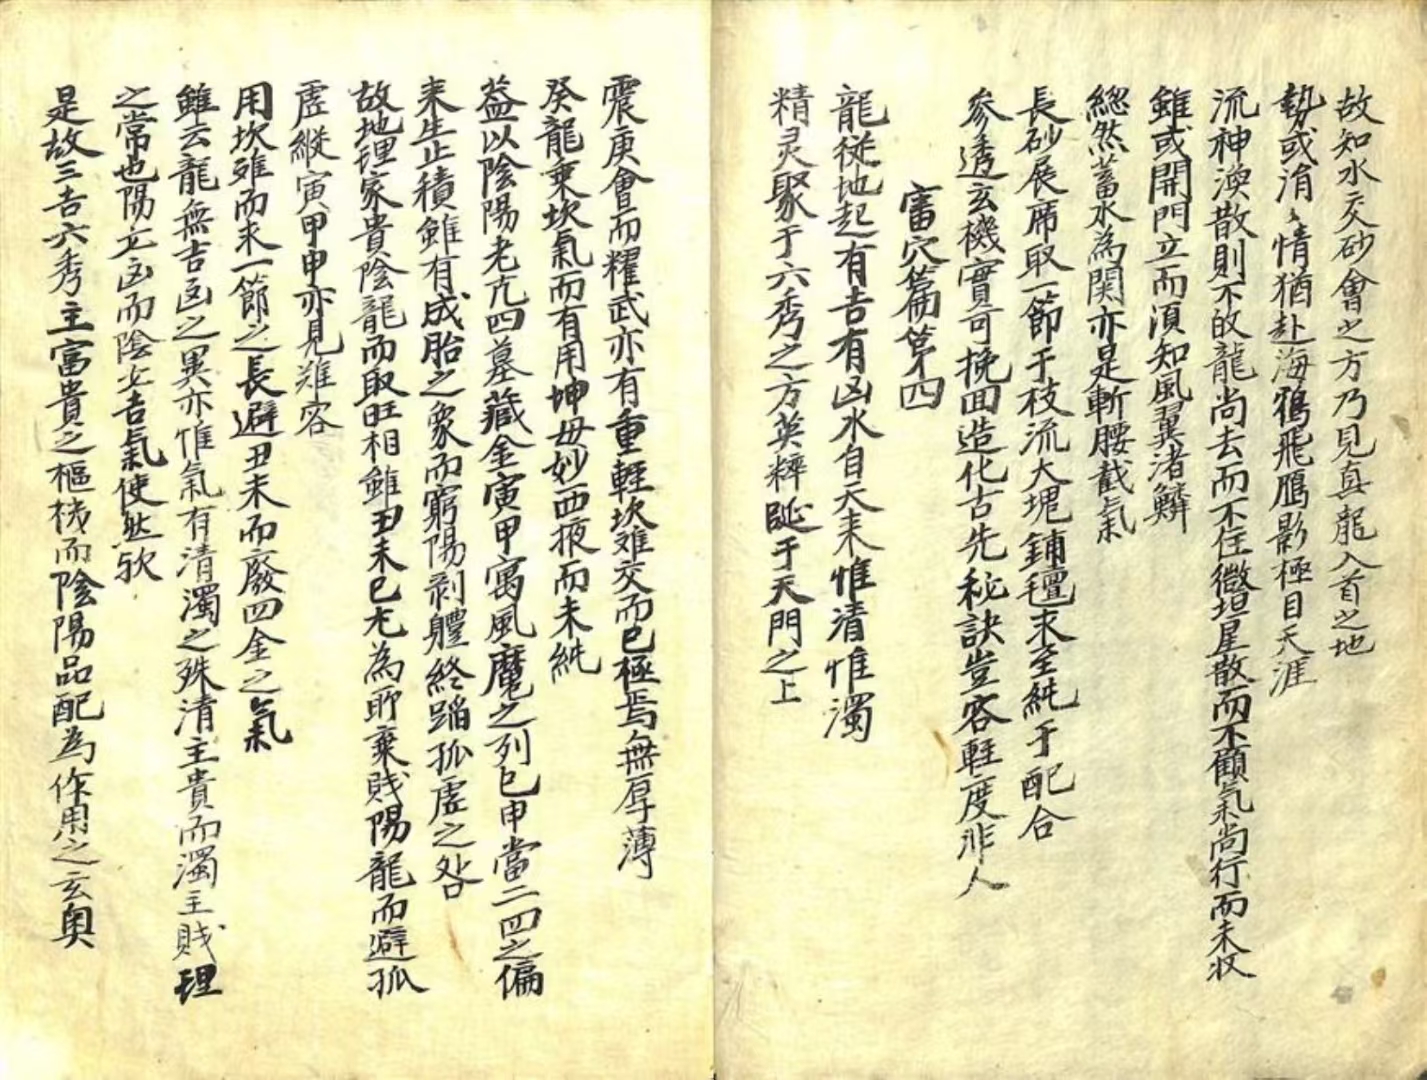 故知水交砂會之方乃見真龍入首之地
勢或淯〻情猶赴海鶴飛鴈影極目天涯
流神渙散則不的龍尚去而不住微垣星散而不顧氣尚行而未收
雖或開門立而湏知風翼渚鱗
縂然蓄水為関亦是斬腰截氣
長砂展席取一節于枝流大塊鋪氊求全純于配合
參透玄機實可挽回造化古先秘訣豈容軽度非人
審穴篇第四
龍從地起有吉有凶水自天来惟清惟濁
精灵聚于六秀之方英粹誕于天門之上
震庚會而耀武亦有重軽坎难交而已極焉無厚薄
癸龍乗坎氣而有用坤母妙西掖而未純
葢以陰陽老亢四墓藏金寅甲寓風魔之列巳申當二四之偏
来生止積雖有成胎之象而窮陽剥軆終蹈孤虛之咎
故地理家貴陰龍而取旺相雖丑未已尢為所棄賎陽龍而避孤
虛縱寅甲申亦見难容
用坎难而未一節之長避丑未而廢四金之氣
雖云龍無吉凶之異亦惟氣有清濁之殊清主貴而濁主賎理
之常也陽立凶而陰立吉氣使然欤
是故三吉六秀主富貴之樞機而陰陽品配為作用之玄奥